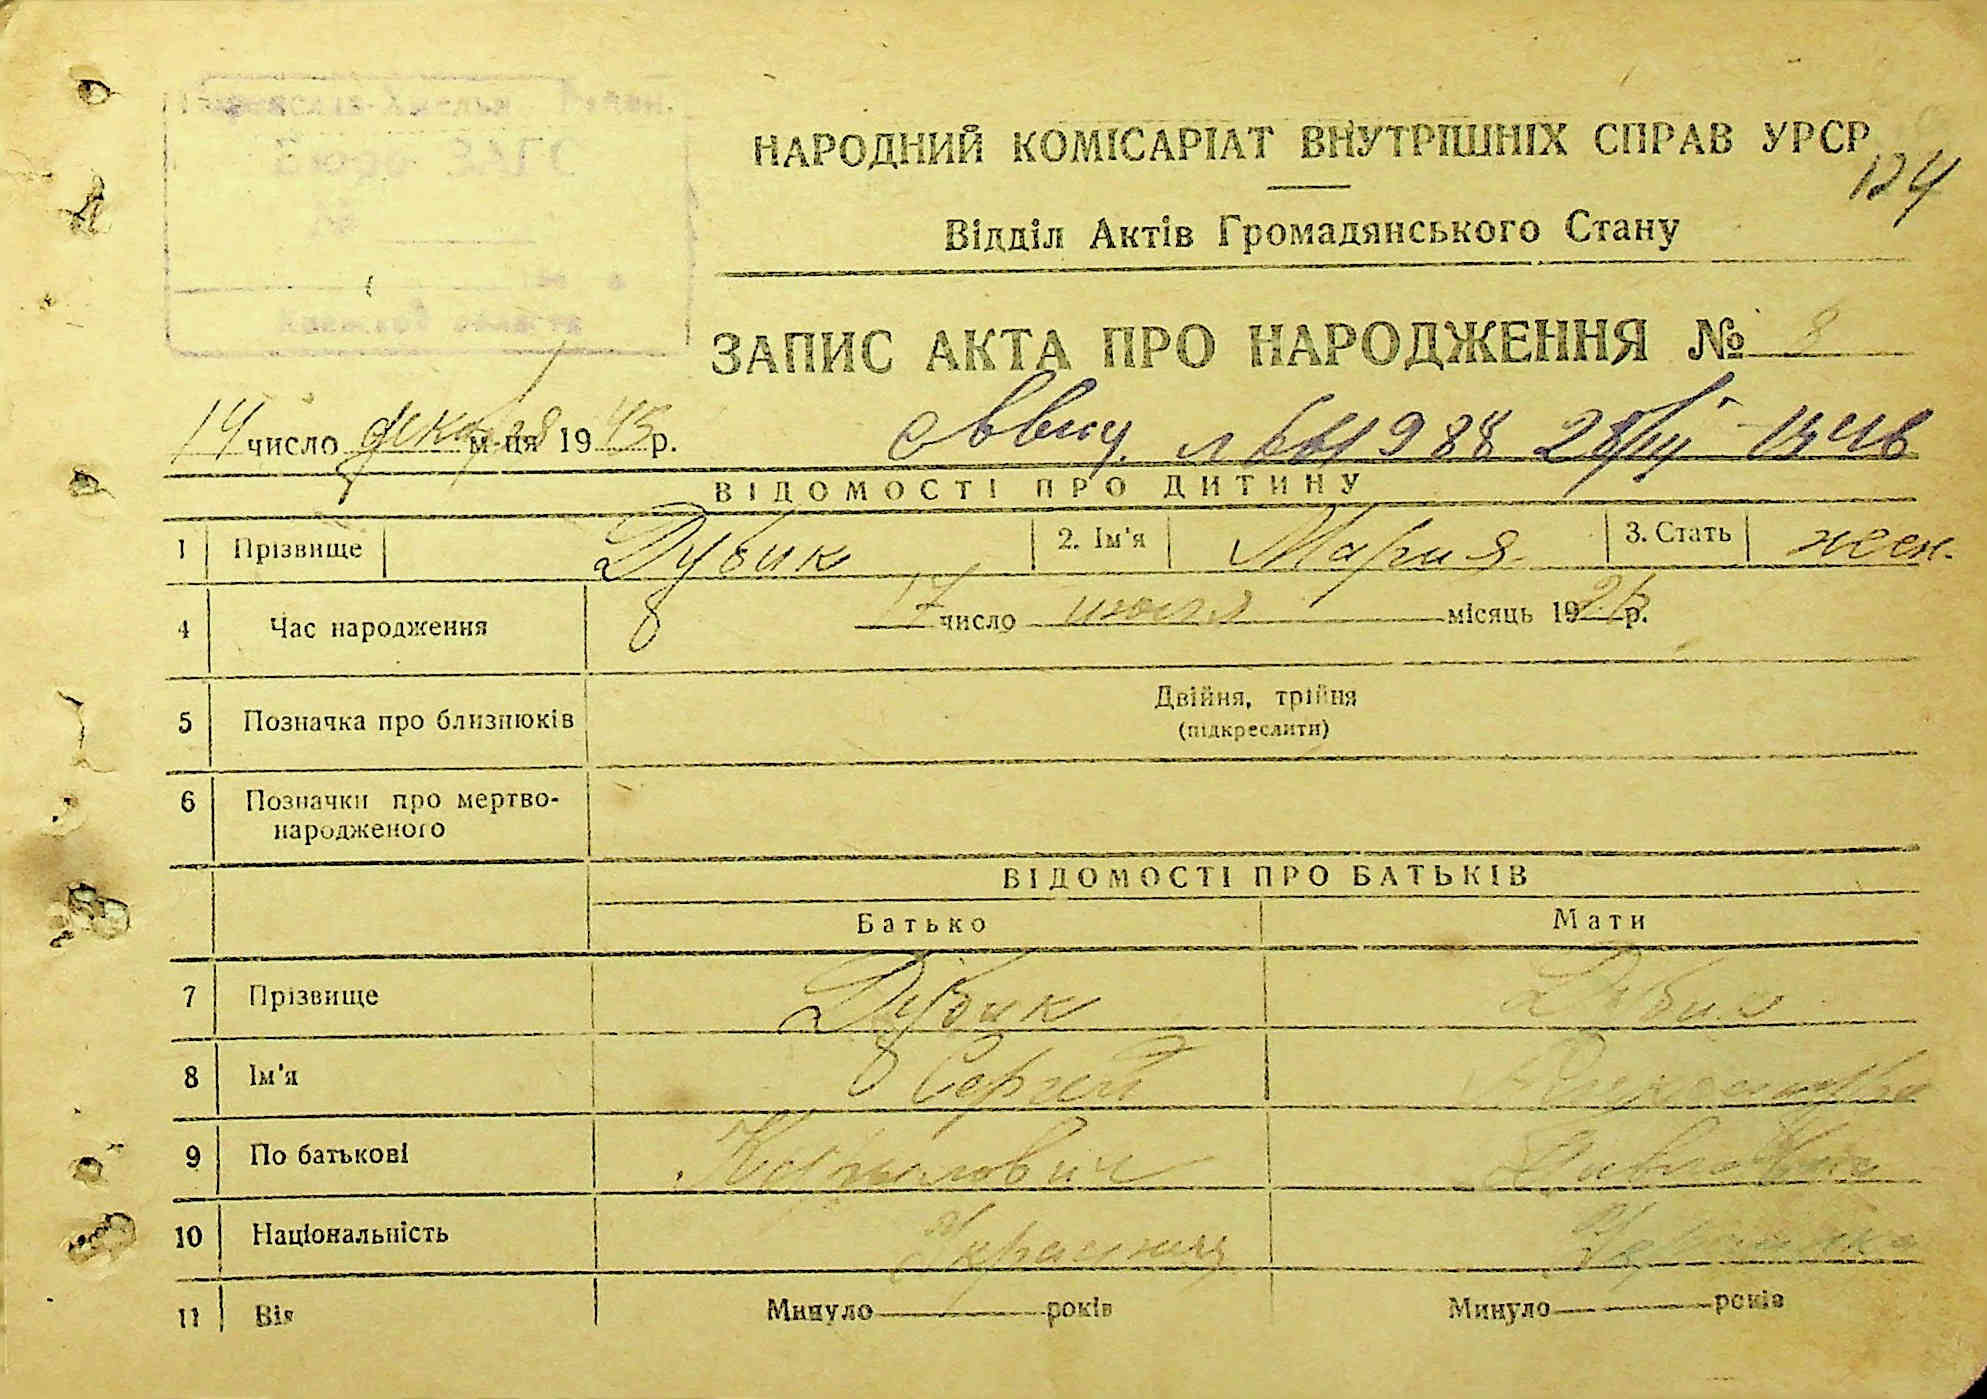 НАРОДНИЙ КОМІСАРІАТ ВНУТРІШНІХ СПРАВ УРСР
124
Відділ Актів Громадянського Стану
ЗАПИС АКТА ПРО НАРОДЖЕННЯ № 8
14 число декабря м-ця 1945 р.
ВІДОМОСТІ ПРО ДИТИНУ
1 Прізвище Дубик 2. Ім'я Мария 3. Стать жен.
4 Час народження 17 число июля місяць 19 р.
5 Позначка про близнюків Двійня, трійня
(підкреслити)
6 Позначки про мертво-
народженого
ВІДОМОСТІ ПРО БАТЬКІВ
Батько Мати
7 Прізвище Дубик Дубик
8 Ім'я Сергей
9 По батькові Павловна
10 Національність Украинец Украинка
11 Вік Минуло років Минуло років